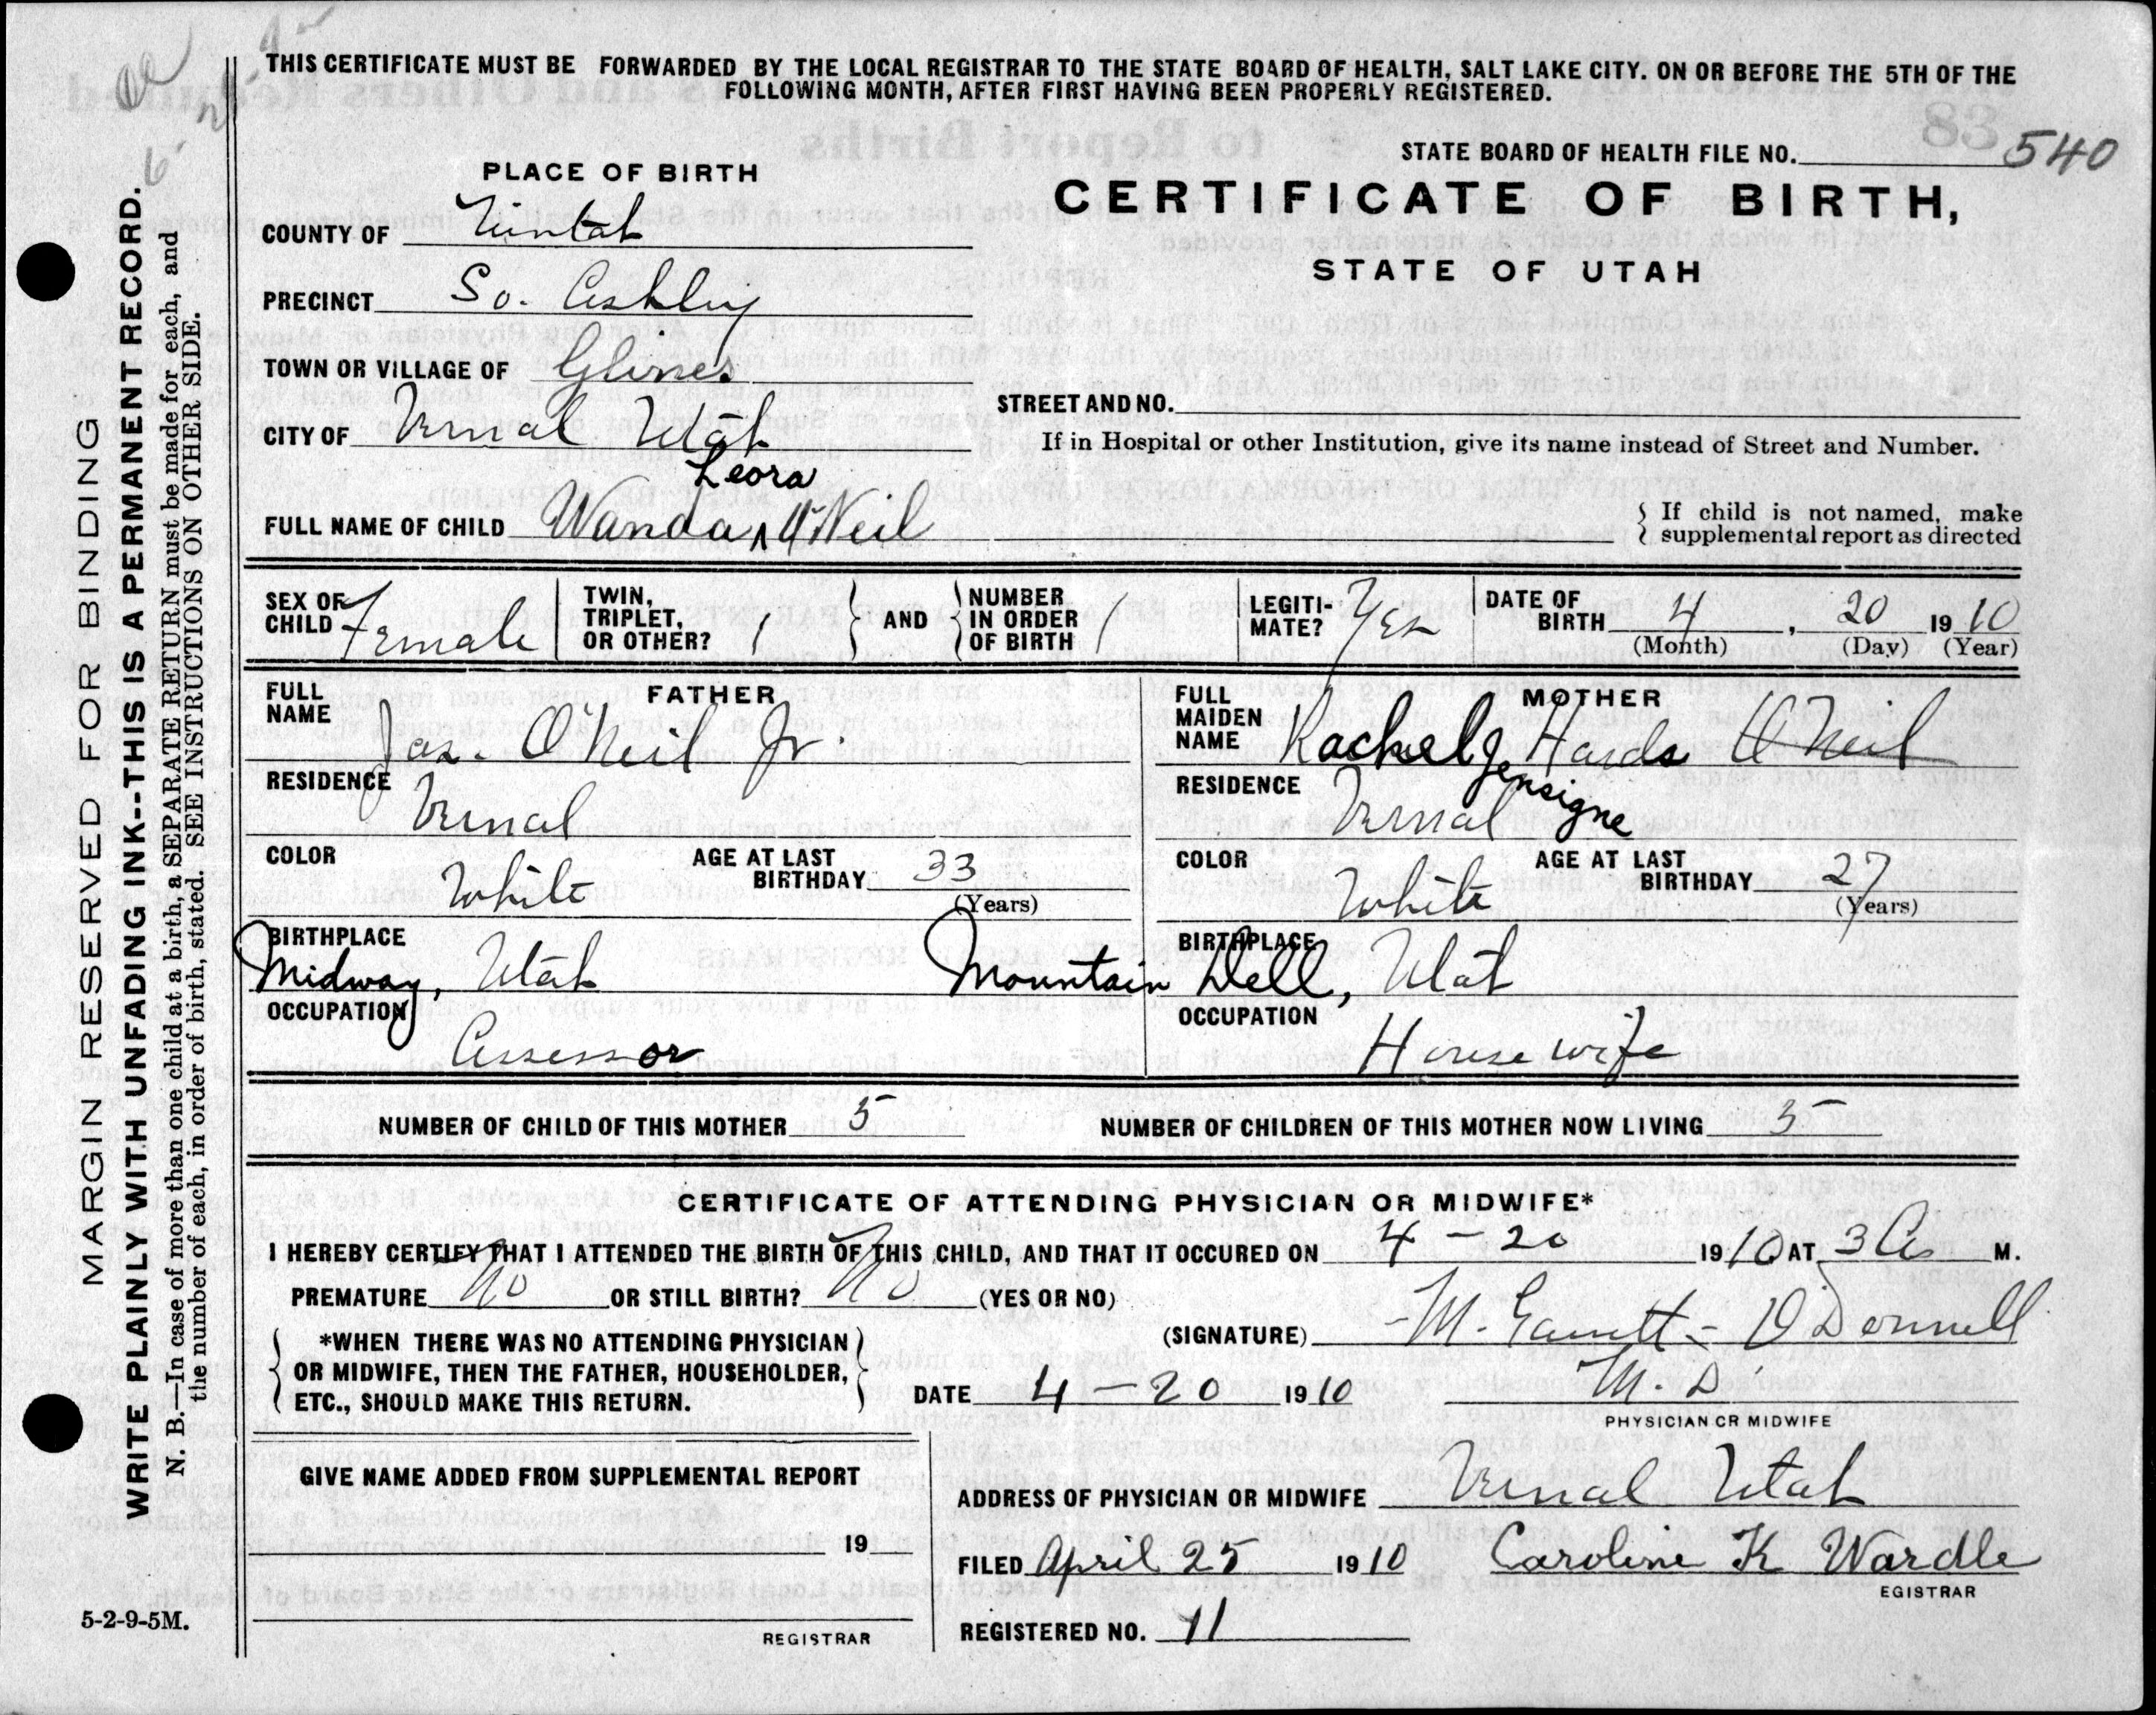 THIS CERTIFICATE MUST BE FORWARDED BY THE LOCAL REGISTRAR TO THE STATE BOARD OF HEALTH, SALT LAKE CITY. ON OR BEFORE THE 5TH OF THE
FOLLOWING MONTH, AFTER FIRST HAVING BEEN PROPERLY REGISTERED.
STATE BOARD OF HEALTH FILE NO. 540
PLACE OF BIRTH
CERTIFICATE OF BIRTH,
STATE OF UTAH
COUNTY OF Uintah
PRECINCT So. Ashley
TOWN OR VILLAGE OF Glines
STREET AND NO.
CITY OF Vernal Utah
If in Hospital or other Institution, give its name instead of Street and Number.
Leora
FULL NAME OF CHILD Wanda ^ O'Neil
If child is not named, make
supplemental report as directed
SEX OF CHILD Female
TWIN, TRIPLET, OR OTHER? 1
AND
NUMBER IN ORDER OF BIRTH 1
LEGITI-MATE? Yes
DATE OF BIRTH 4, 20 1910
(Month) (Day) (Year)
FATHER
FULL NAME Jas. O'Neil Jr.
RESIDENCE Vernal
COLOR White
AGE AT LAST BIRTHDAY 33
(Years)
BIRTHPLACE
Midway, Utah
OCCUPATION
Assessor
MOTHER
FULL MAIDEN NAME Rachel Jensigne Hards O'Neil
RESIDENCE Vernal
COLOR White
AGE AT LAST BIRTHDAY 27
(Years)
BIRTHPLACE
Mountain Dell, Utah
OCCUPATION
Housewife
NUMBER OF CHILD OF THIS MOTHER 5
NUMBER OF CHILDREN OF THIS MOTHER NOW LIVING 5
CERTIFICATE OF ATTENDING PHYSICIAN OR MIDWIFE*
I HEREBY CERTIFY THAT I ATTENDED THE BIRTH OF THIS CHILD, AND THAT IT OCCURED ON 4-20 1910 AT 3 A. M.
PREMATURE No OR STILL BIRTH? No (YES OR NO)
*WHEN THERE WAS NO ATTENDING PHYSICIAN
OR MIDWIFE, THEN THE FATHER, HOUSEHOLDER,
ETC., SHOULD MAKE THIS RETURN.
(SIGNATURE) M. Garrett-O'Donnell
DATE 4-20 1910
M.D.
PHYSICIAN OR MIDWIFE
GIVE NAME ADDED FROM SUPPLEMENTAL REPORT
19
REGISTRAR
ADDRESS OF PHYSICIAN OR MIDWIFE Vernal Utah
FILED April 25 1910 Caroline K Wardle
EGISTRAR
REGISTERED NO. 11
5-2-9-5M.
MARGIN RESERVED FOR BINDING
WRITE PLAINLY WITH UNFADING INK--THIS IS A PERMANENT RECORD.
N. B.—In case of more than one child at a birth, a SEPARATE RETURN must be made for each, and
the number of each, in order of birth, stated. SEE INSTRUCTIONS ON OTHER SIDE.